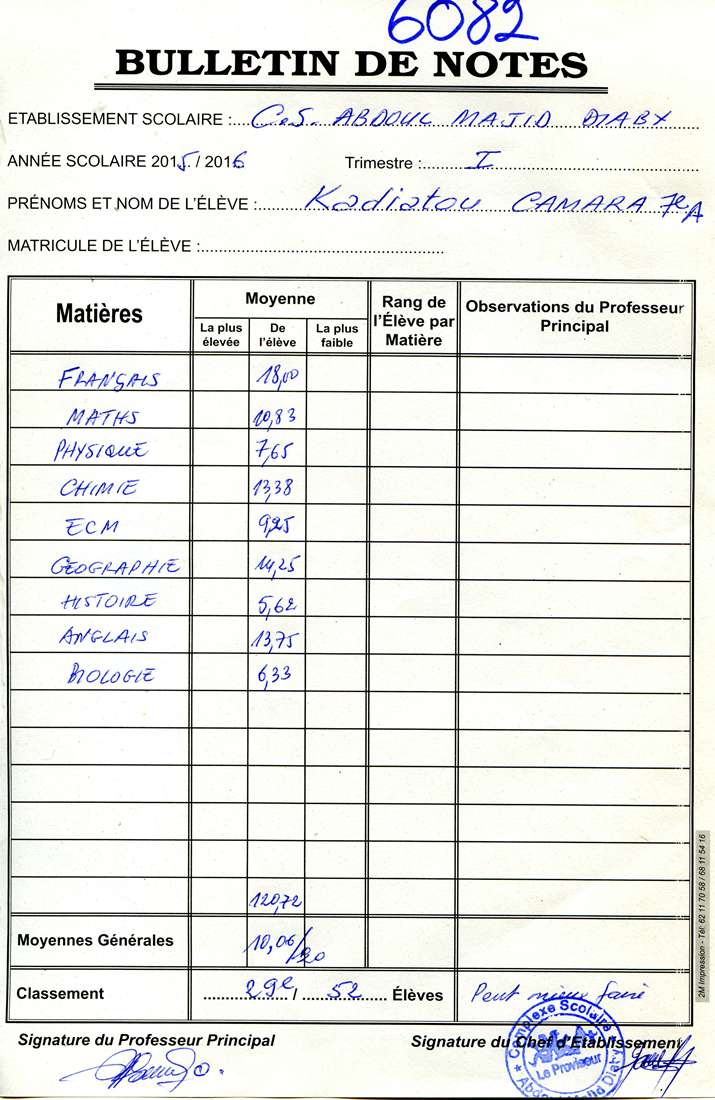 6082
BULLETIN DE NOTES
ETABLISSEMENT SCOLAIRE : C.S. ABDOUL MAJID DIABY
ANNÉE SCOLAIRE 2015 / 2016 Trimestre : I
PRÉNOMS ET NOM DE L'ÉLÈVE : Kadiatou CAMARA 7e A
MATRICULE DE L'ÉLÈVE :
Matières Moyenne Rang de l'Élève par Matière Observations du Professeur Principal
La plus élevée De l'élève La plus faible
FRANÇAIS 18,00
MATHS 10,83
PHYSIQUE 7,65
CHIMIE 13,38
ECM 9,25
GÉOGRAPHIE 14,25
HISTOIRE 5,62
ANGLAIS 13,75
BIOLOGIE 6,33
120,72
Moyennes Générales 10,06/20
Classement 29e / 52 Élèves Peut mieux faire
Signature du Professeur Principal Signature du Chef d'Etablissement
Complexe Scolaire
Le Proviseur
2M Impression - Tél: 62 11 70 58 / 68 11 54 16